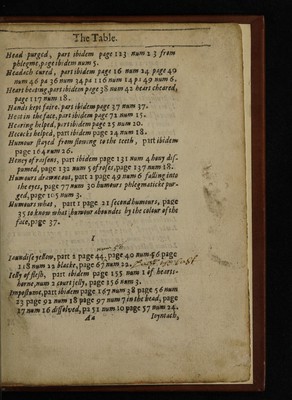 The Table.
Head purged, part ibidem page 123 num 23 from
phlegme, page ibidem num 5.
Headach cured, part ibidem page 16 num 24 page 49
num 46 pa 36 num 34 pa 116 num 14 pa 49 num 6.
Heart beating, part ibidem page 38 num 42 heart cheared,
page 117 num 18.
Hands kept faire, part ibidem page 37 num 37.
Heat in the face, part ibidem page 71 num 15.
Hearing helped, part ibidem page 15 num 20.
Hecocks helped, part ibidem page 14 num 18.
Humour stayed from flowing to the teeth, part ibidem
page 164 num 26.
Honey of rosens, part ibidem page 131 num 4 hony dis-
pumed, page 132 num 5 of roses, page 137 num 18.
Humours drawne out, part 2 page 49 num 6 falling into
the eyes, page 77 num 30 humours phlegmaticke pur-
ged, page 105 num 3.
Humours what, part 1 page 21 second humours, page
35 to know what humour aboundes by the colour of the
face, page 37.
I
Iaundise yellow, part 2 page 44. page 40 num 56 page
118 num 22 blacke, page 67 num 22.
Ielly of flesh, part ibidem page 155 num 1 of hearts-
horne, num 2 court jelly, page 156 num 3.
Impostume, part ibidem page 167 num 38 page 56 num
23 page 92 num 18 page 97 num 7 in the head, page
17 num 16 dissolved, pa 51 num 10 page 57 num 24.
Aa